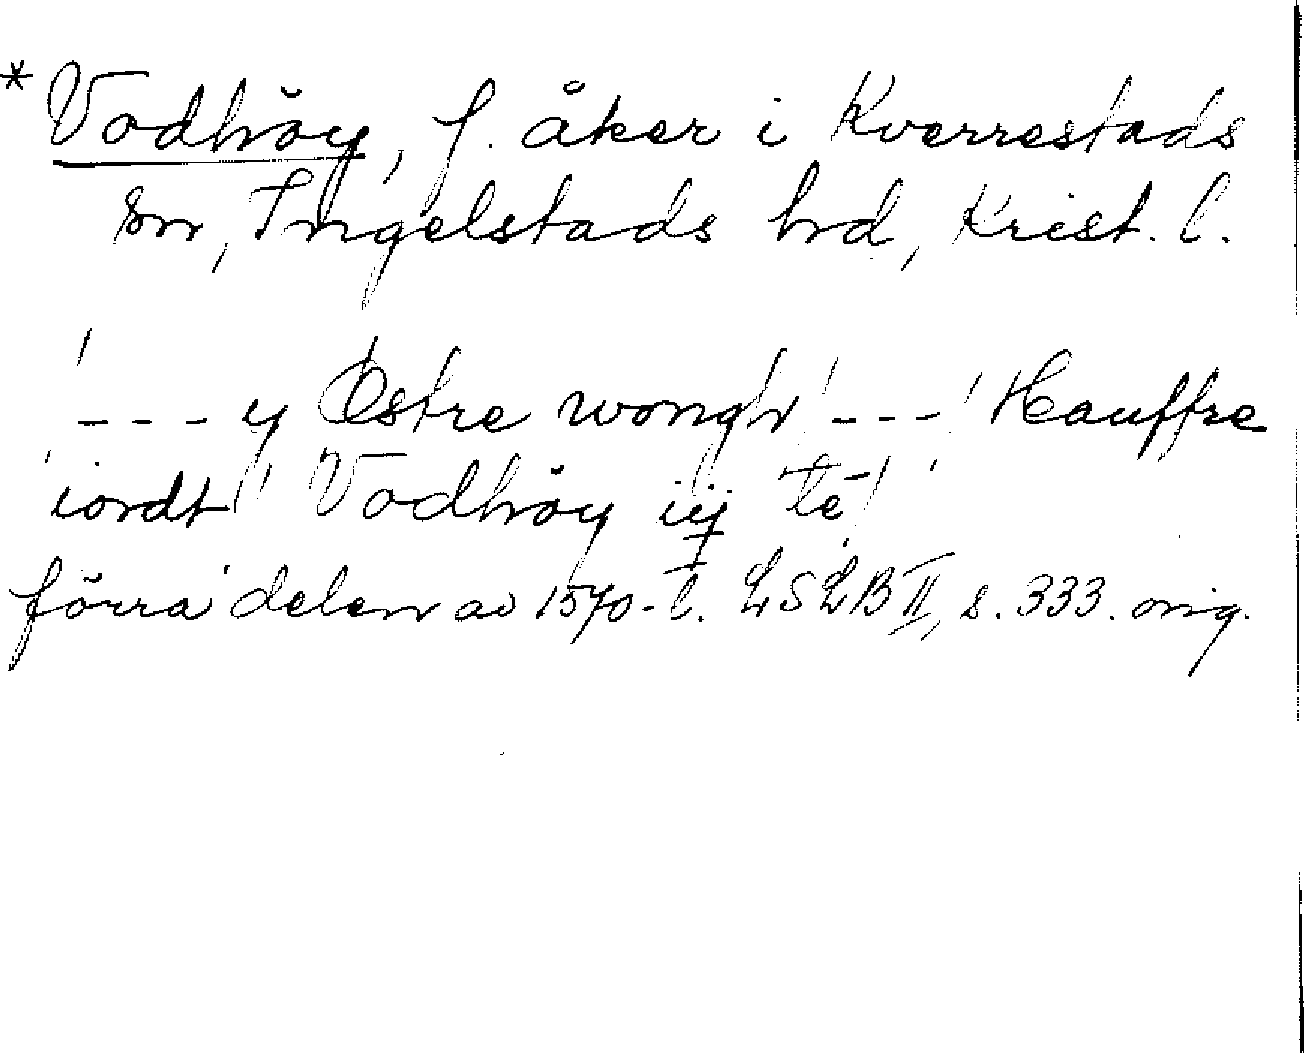 * Vodhöy, f. åker i Kverrestads
sn, Ingelstads hd, Krist. l.
'--- y Østre wongh '---' Hauffre
iordt' Vodhöy iij te'
förra delen av 1570-t. LSLB II, s. 333. orig.